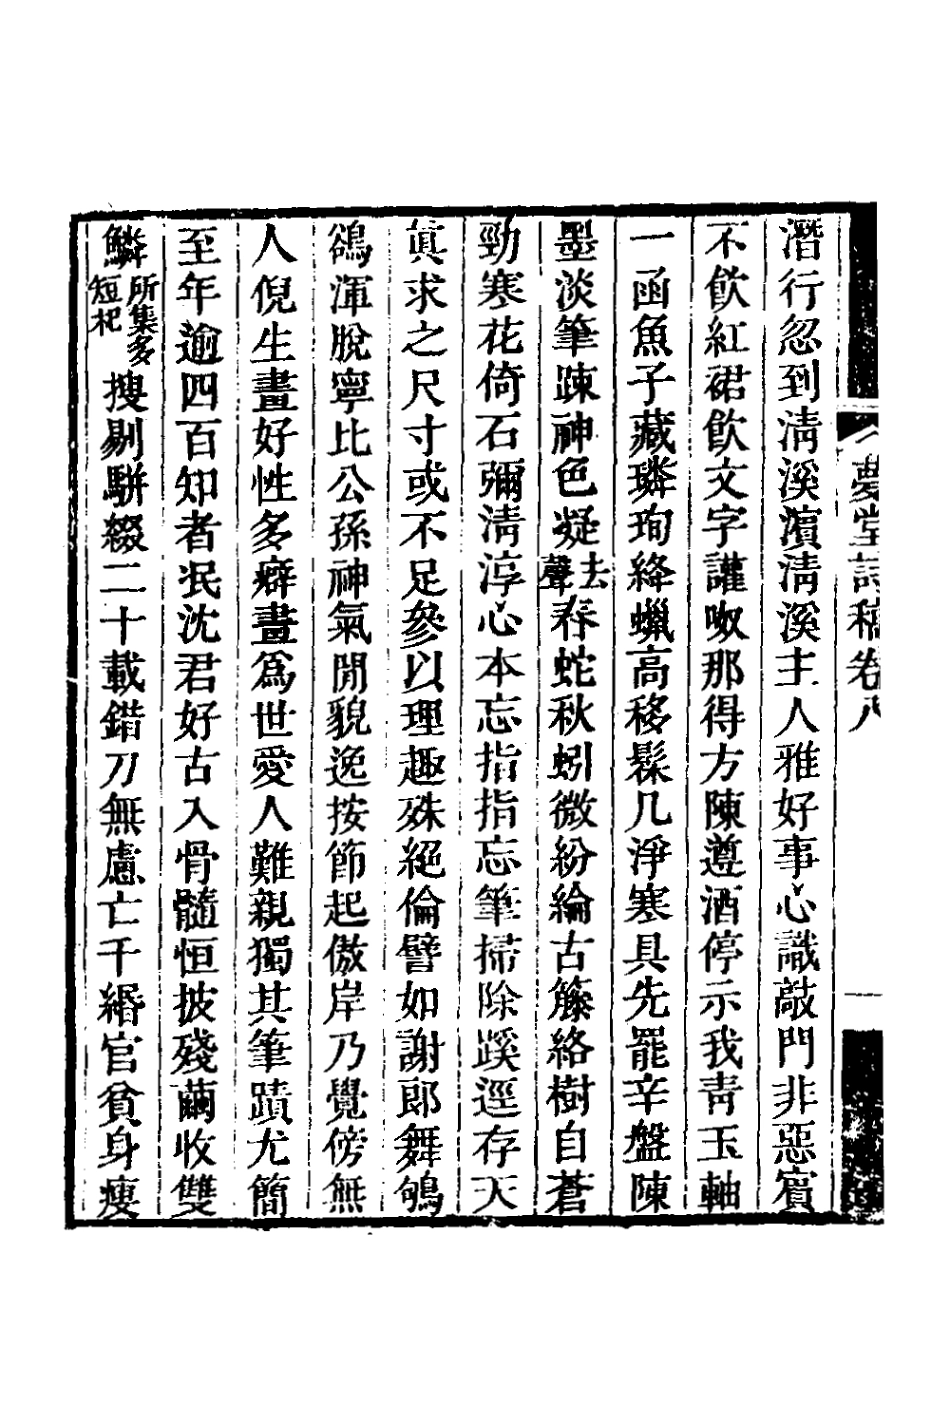 夢堂詩稿卷八
一
潛行忽到淸溪濵淸溪主人雅好事心識敲門非惡賓
不飮紅裙飮文字讙呶那得方陳遵酒停示我靑玉軸
一函魚子藏璘珣絳蠟高移髹几淨寒具先罷辛盤陳
墨淡筆踈神色凝去聲春蛇秋蚓微紛綸古籐絡樹自蒼
勁寒花倚石彌淸淳心本忘指指忘筆掃除蹊逕存天
眞求之尺寸或不足參以理趣殊絕倫譬如謝郎舞鴝
鵒渾脫寧比公孫神氣閒貌逸按節起傲岸乃覺傍無
人倪生畫好性多癖畫爲世愛人難親獨其筆蹟尤簡
至年逾四百知者泯沈君好古入骨髓恒披殘繭收雙
鱗所集多短札搜剔騈綴二十載錯刀無慮亡千緡官貧身瘦